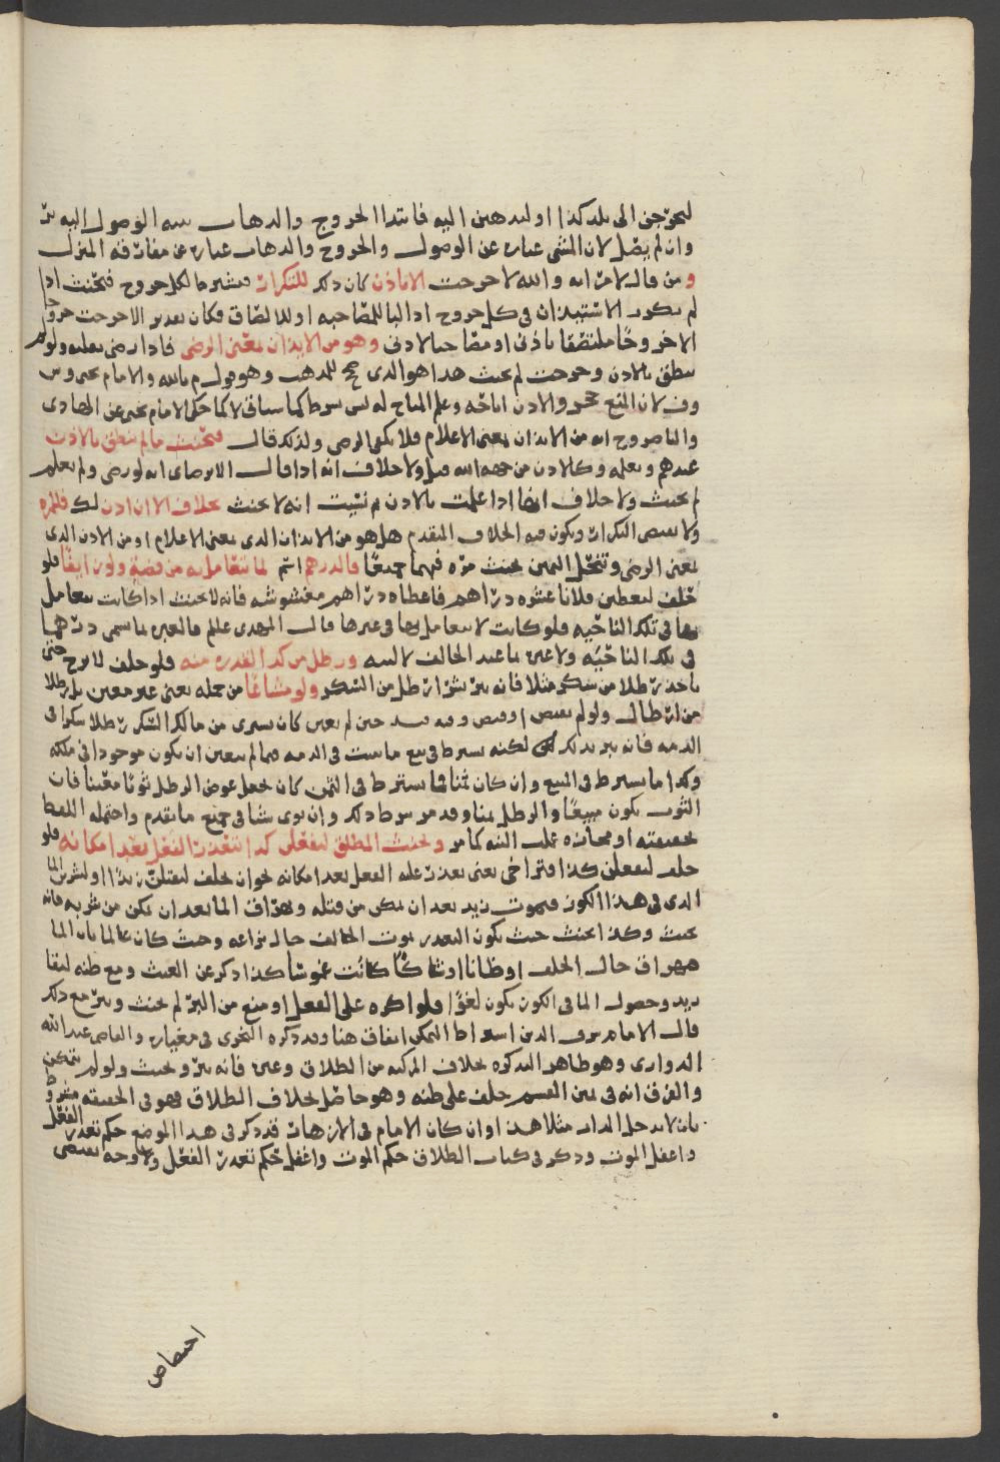 ليخرجن الى بلد كذا او ليدهبن اليه فابتدا الخروج والدهاب بنيه الوصول اليه بر
وان لم يصل لان المشي عباره عن الوصول والخروج والدهاب عباره عن مفارقه المنزل
ومن قال لامراته والله لا خرجت الا باذن كان ذلك للتكرار فيشترط لكل خروج فتحنث اذا
لم يتكرر الاستيذان في كل خروج اذ البا للمصاحبه او للالصاق فكان تقدير لا خرجت خروجا
الا خروجًا ملتصقا باذن او مصاحبا لاذن وهو من الايذان بمعنى الرضى فاذا رضى بقلبه ولو لم
ينطق بالاذن وخرجت لم يحنث هذا هو الذي صح للمذهب وهو قول م بالله والامام يحيى وس
وف لان المنع حجر والاذن اباحه وعلم المباح له ليس بشرط كما سياتي لا كما حكى الامام يحيى عن الهادي
والناصر وح انه من الايذان بمعنى الاعلام فلا يكفي الرضى ولذلك قال فتحنث ما لم ينطق بالاذن
عندهم وبعلمه وكالاذن من جهه الله قيل ولا خلاف انه اذا قال الا برضاي انه لو رضي ولم تعلم
لم يحنث ولا خلاف ايضا اذا علمت بالاذن ثم نسيت انه لا يحنث بخلاف الا ان اذن لك فللمره
ولا يقتضي التكرار ويكون فيه الخلاف المتقدم هل هو من الايذان الذي بمعنى الاعلام او من الاذن الذي
بمعنى الرضى وتنحل اليمين بحنث مره فيهما جميعًا والدرهم اسم لما يتعامل به من فضة ولو زايفًا فلو
حلف ليعطين فلانا عشره دراهم فاعطاه دراهم مغشوشه فانه لا يحنث اذا كانت يتعامل
بها في تلك الناحيه فلو كانت لا يتعامل بها في غيرها قال المهدي عليلم فالعبره بما يسمى درهما
في تلك الناحيه ولا عبره بما عند الحالف لا لنيه ورطل من كذا لقدره منه فلو حلف لا برح حتى
ياخذ رطلا من سكر مثلا فانه يبر بشرا رطل من السكر ولو مشاعًا من جمله يعني غير معين بل رطلا
من ارطال ولو لم يقبض حين لم يعين كان يشتري من مالك السكر رطلا سكرا في
الذمه فانه يبر بذلك لكنه يشترط في بيع ما يثبت في الذمه فيما لم يتعين ان يكون موجودا في ملكه
وكذا ما يشترط في المبيع وان كان ثمنا فما يشترط في الثمن كان يجعل عوض الرطل ثوبًا معينا فان
الثوب يكون مبيعًا والرطل ثمنا وقد مر شروط ذلك وان نوى شيا في جميع ما تقدم واحتمله اللفظ
بحقيقته او مجازه عملت النيه كما مر ويحنث المطلق ليفعلن كذا بتعذر الفعل بعد امكانه فلو
حلف ليفعلن كذا فتراخى يعني تعذر عليه الفعل بعد امكانه نحو ان يحلف ليقتلن زيدًا او ليشربن الما
الذي في هذا الكوز فيموت زيد بعد ان تمكن من قتله ويهراق الما بعد ان تمكن من شربه فانه
يحنث وكذا يحنث حيث يكون التعذر بموت الحالف حال نزاعه وحيث كان عالما بان الما
مهراق حال الحلف او ظانا او شاكًا كانت غموسًا كذا ذكر عن الغيث ومع ظنه لبقا
زيد وحصول الما في الكوز يكون لغوًا فلو اكره على الفعل او منع من البر لم يحنث ويبر مع ذلك
قال الامام شرف الدين اشتراط التمكن اتفاق هنا وقد ذكره النجري في معياره والقاضي عبد الله
الدواري وهو ظاهر التذكره بخلاف المركبه من الطلاق وغيره فانه يبر ويحنث ولو لم يتمكن
والفرق انه في يمين القسم حلف على ظنه وهو حاصل بخلاف الطلاق فهو في الحقيقه مشروط
بان لا يدخل الدار مثلا هذا وان كان الامام في الازهار قد ذكر في هذا الموضع حكم تعذر الفعل
واغفل الموت وذكر في كتاب الطلاق حكم الموت واغفل حكم تعذر الفعل ولا وجه يقتضي
اختصاص